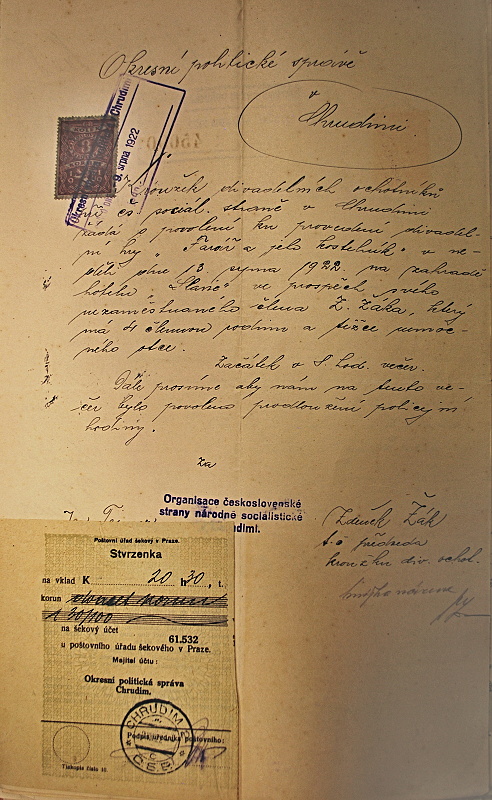 Okresní politické správě
v
Chrudimi.
KOLEK
Chrudim
9. srpna 1922
Kroužek divadelních ochotníků
při čs. sociál. straně v Chrudimi
žádá o povolení ku provedení divadel-
ní hry „Farář a jeho kostelník" v ne-
děli dne 13 srpna 1922 na zahradě
hotelu „Slané" ve prospěch svého
nezaměstnaného člena Z. Žáka, který
má 4 člennou rodinu a těžce nemoc-
ného otce.
Začátek v 8. hod. večer.
Dále prosíme aby nám na tuto ve-
čer bylo povoleno prodloužení policejní
hodiny.
za
Organisace československé
strany národně socialistické
Zdeněk Žák
t.č. předseda
kroužku div. ochot.
Poštovní úřad šekový v Praze.
Stvrzenka
na vklad K 20 h 30, t.
korun
na šekový účet
61.532
u poštovního úřadu šekového v Praze.
Majitel účtu:
Okresní politická správa
Chrudim.
CHRUDIM 2
Podpis úředníka poštovního:
Č.S.R.
Tiskopis číslo 10.